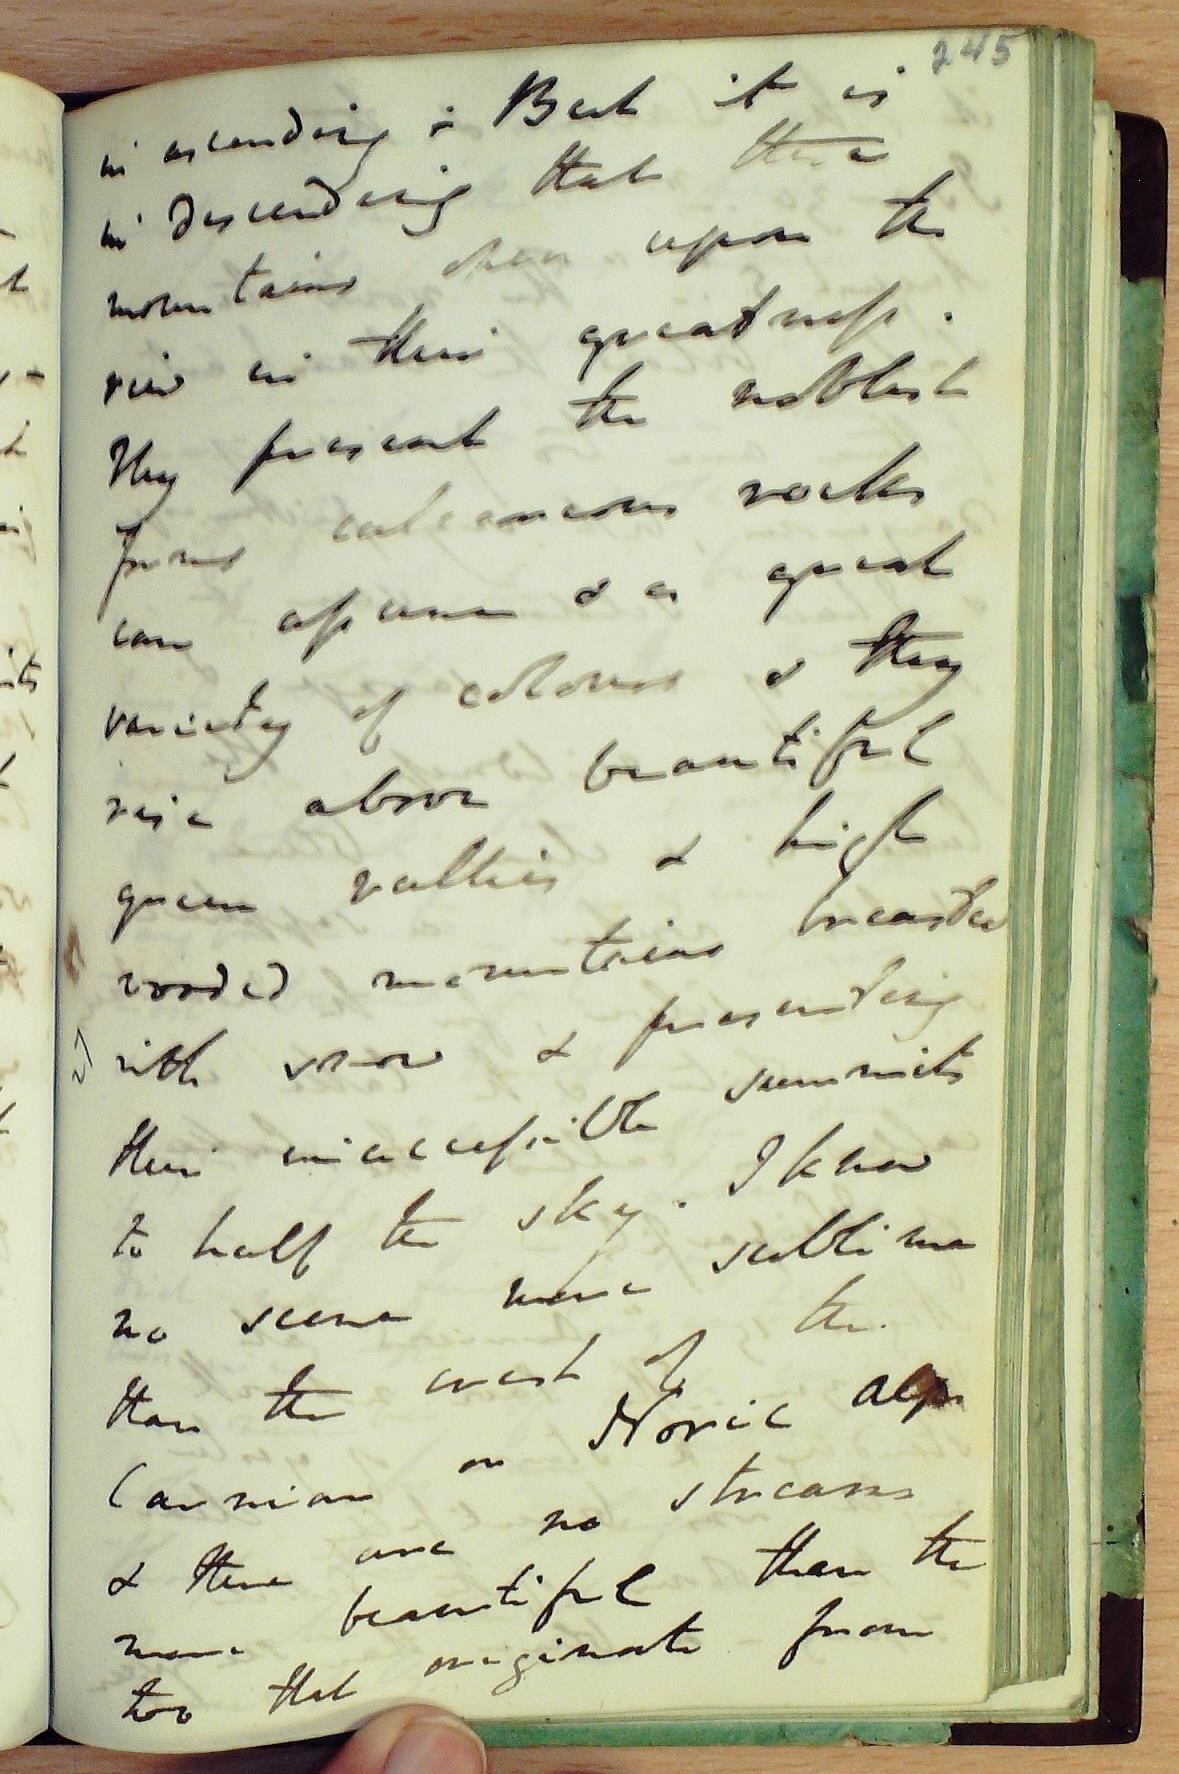 245
in ascending :- But it is
in descending that these
mountains shew upon the
view in their greatness.
They present the noblest
forms calcareous rocks
can assume & a great
variety of colours & they
rise above beautiful
green vallies & high
wooded mountains breasted
with snow & presenting
their inaccessible summits
to half the sky. I know
no scene more sublime
than the crest of the
Carnian or Noric Alps
& there are no streams
more beautiful than the
two that originate from